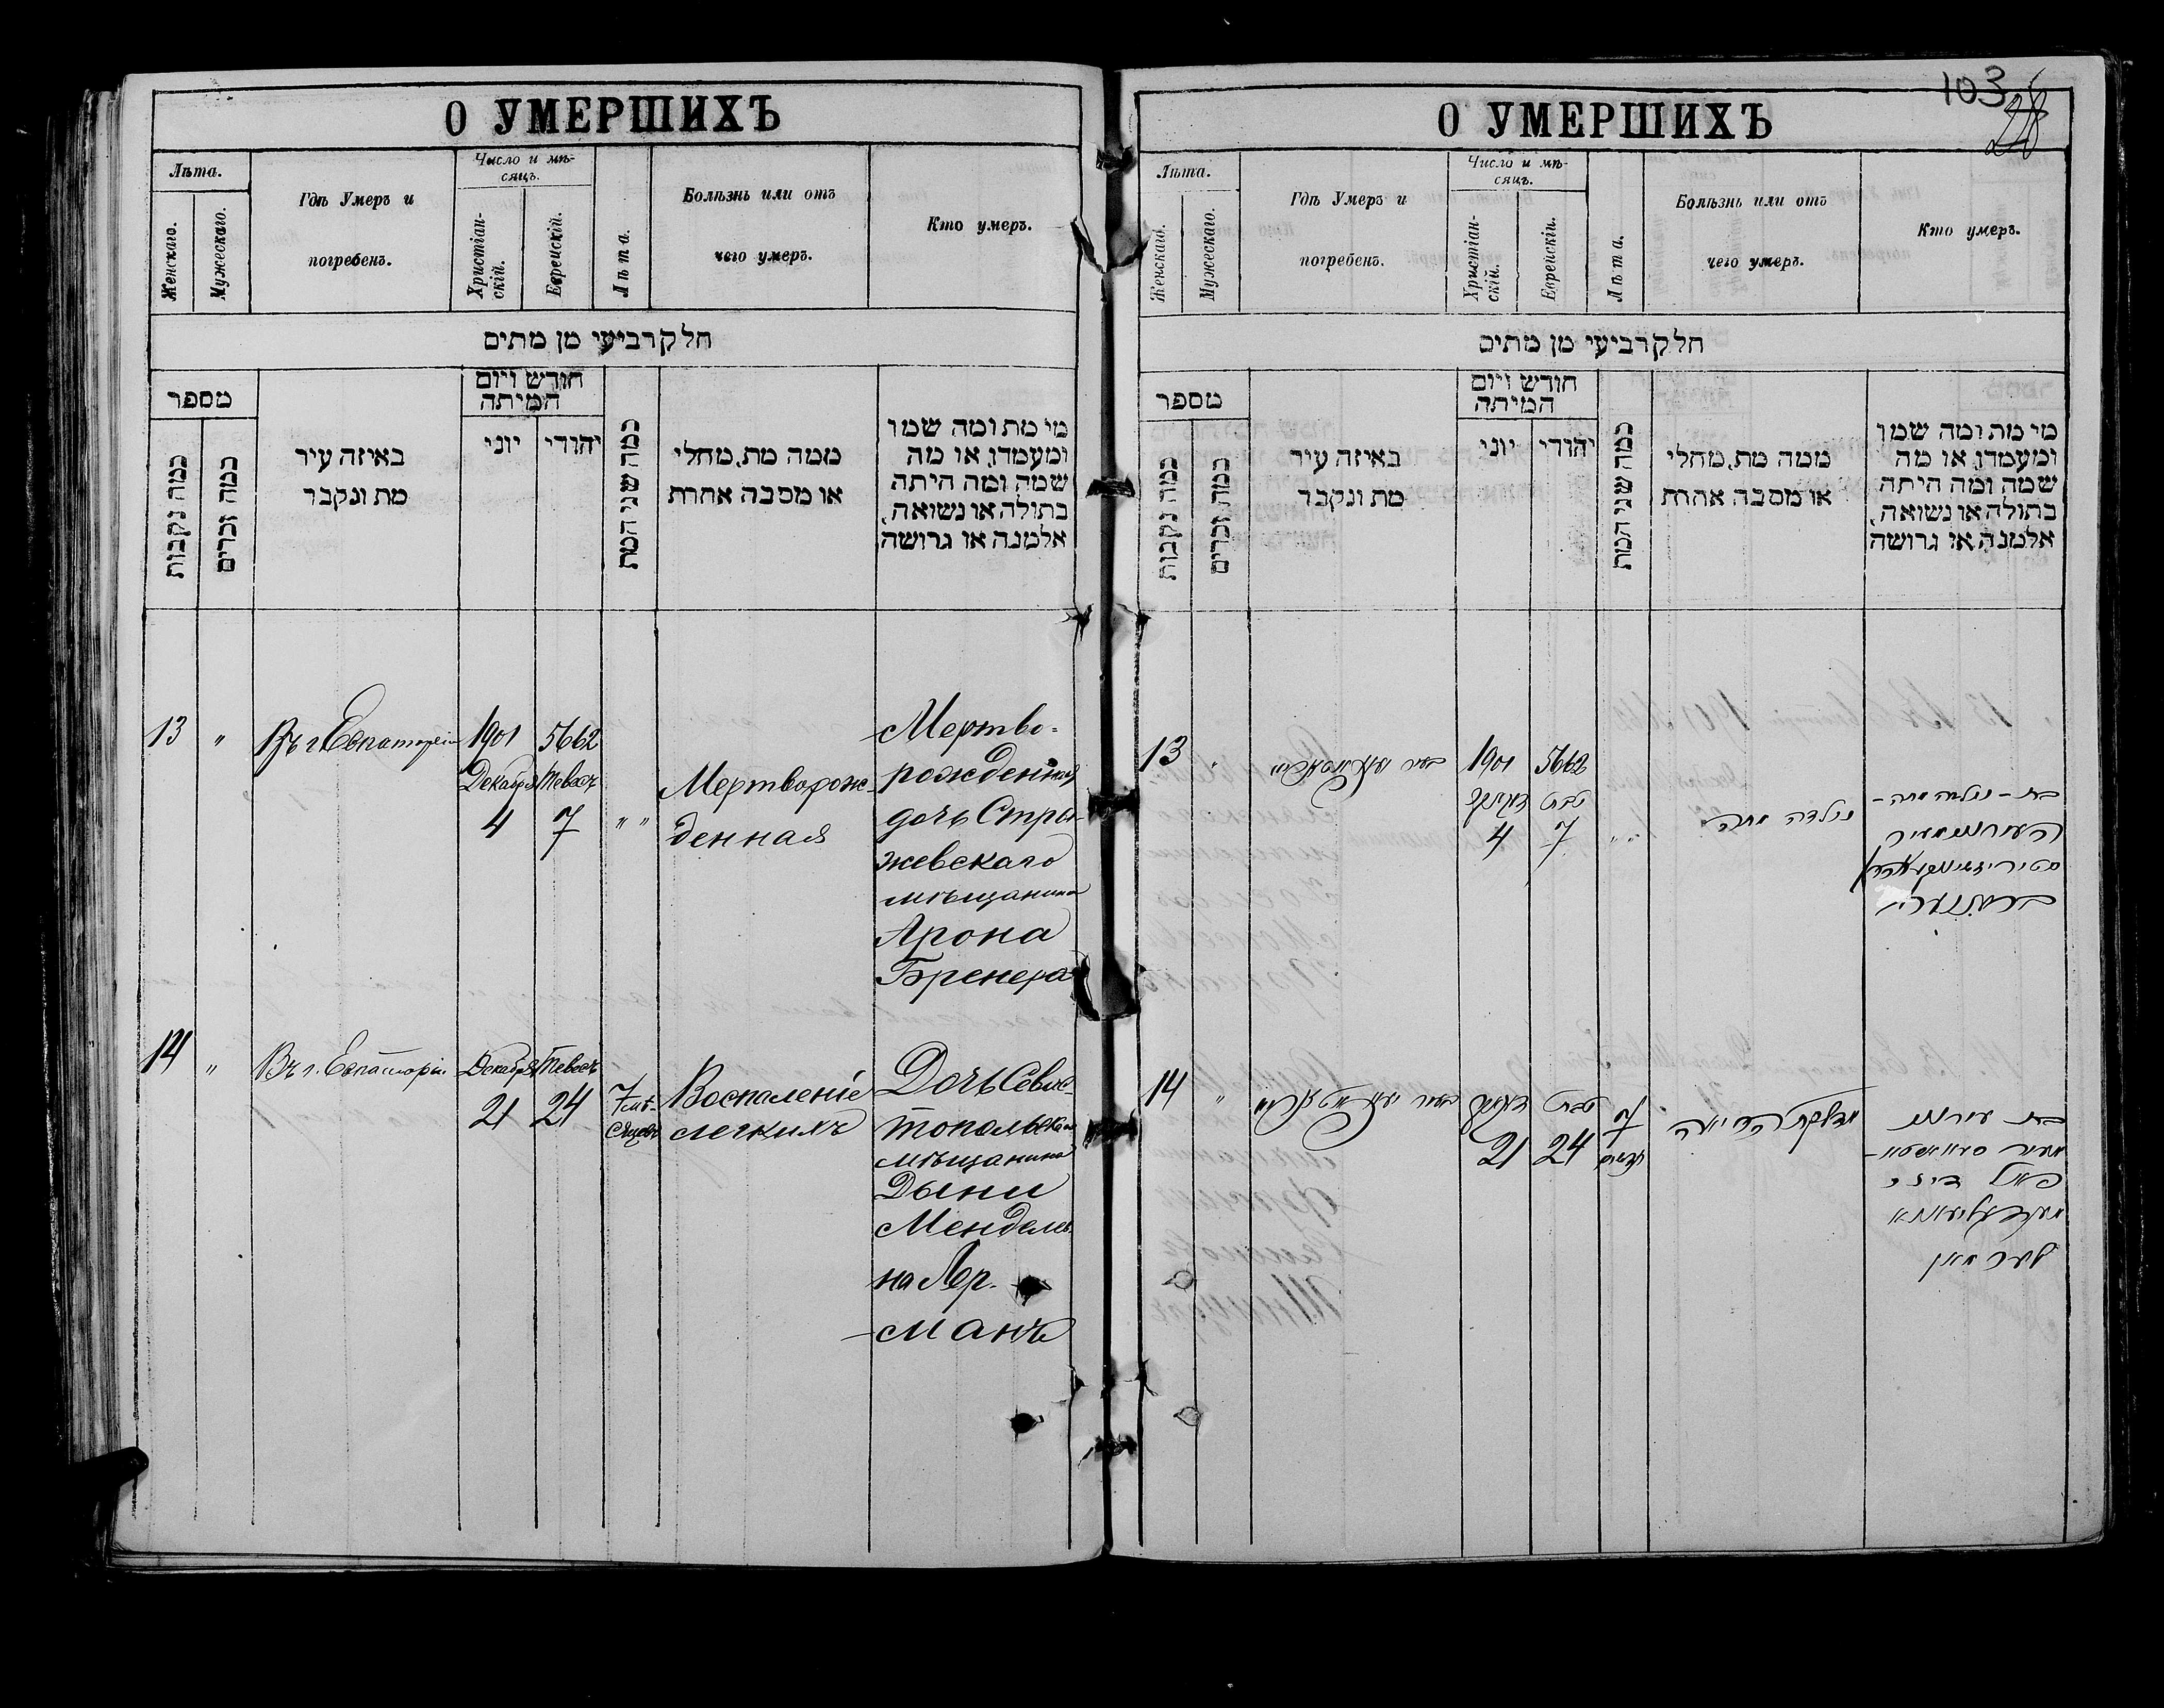 О УМЕРШИХЪ
Лѣта.
Женскаго.
Мужескаго.
Гдѣ Умеръ и
погребенъ.
Число и мѣ-
сяцъ.
Христіан-
скій.
Еврецскій.
Лѣта.
Болѣзнь или отъ
чего умеръ.
Кто умеръ.
חלק רביעי מן מתים
מספר
כמה נקבות
כמה זכרים
באיזה עיר
מת ונקבר
חודש ויום
המיתה
יוני
יהודי
כמה שני המת
ממה מת, מחלי
או מסבה אחרת
מי מת ומה שמו
ומעמדו, או מה
שמה ומה היתה
בתולה או נשואה,
אלמנה או גרושה
13 " Въ г. Евпаторіи 1901 5662
Декабря Тевесъ
4 7 " "
Мертворож-
денная
Мертво-
рожденная
дочь Стры-
жевскаго
мѣщанина
Арона
Бренера
14 " Въ г. Евпаторіи Декабря Тевесъ
21 24
7 мѣ-
сяцевъ
Воспаленіе
легкихъ
Дочь Севас-
топольскаго
мѣщанина
Дыни
Мендель-
на Лер.
-манъ
103
28
О УМЕРШИХЪ
Лѣта.
Женскаго.
Мужескаго.
Гдѣ Умеръ и
погребенъ.
Число и мѣ-
сяцъ.
Христіан-
скій.
Еврейскій.
Лѣта.
Болѣзнь или отъ
чего умеръ.
Кто умеръ.
חלק רביעי מן מתים
מספר
כמה נקבות
כמה זכרים
באיזה עיר
מת ונקבר
חודש ויום
המיתה
יוני
יהודי
כמה שני המת
ממה מת, מחלי
או מסבה אחרת
מי מת ומה שמו
ומעמדו, או מה
שמה ומה היתה
בתולה או נשואה,
אלמנה או גרושה
13 1901 5662
טבת
4 7
נולדה מתה
בת - נולדה מתה -
14 " טבת
21 24
7
חדשים
בת
מעיר סעוואסטא
פאל